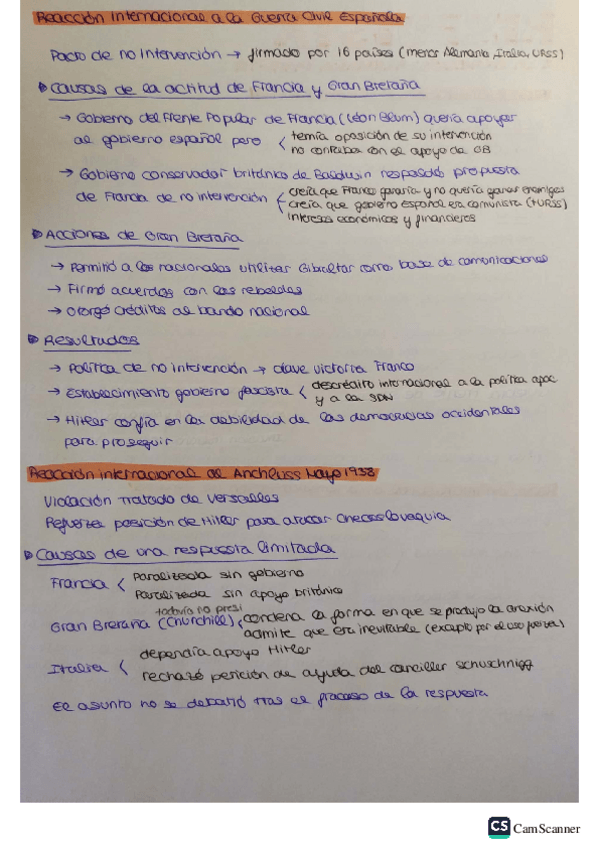 Reacción Internacional a la Guerra Civil Española
Pacto de no Intervención → firmado por 16 países (menos Alemania, Italia, URSS)
Causas de la actitud de Francia y Gran Bretaña
→ Gobierno del Frente Popular de Francia (Léon Blum) quería apoyar
al gobierno español pero < temía oposición de su intervención
no contaba con el apoyo de GB
→ Gobierno conservador británico de Baldwin respaldó propuesta
de Francia de no intervención < creía que Franco ganaría y no quería ganar enemigos
creía que gobierno español era comunista (+URSS)
intereses económicos y financieros
Acciones de Gran Bretaña
→ Permitió a los nacionales utilizar Gibraltar como base de comunicaciones
→ Firmó acuerdos con los rebeldes
→ Otorgó créditos al bando nacional
Resultados
→ Política de no intervención → clave victoria Franco
→ Establecimiento gobierno fascista < descrédito internacional a la política apac
y a la SDN
→ Hitler confía en la debilidad de las democracias occidentales
para proseguir
Reacción internacional al Anchluss 1938
Violación Tratado de Versalles
Refuerza posición de Hitler para atacar Checoslovaquia
Causas de una respuesta limitada
Francia < Paralizada sin gobierno
Paralizada sin apoyo británico
todavía no presi
Gran Bretaña (Churchill) < condena la forma en que se produjo la anexión
admite que era inevitable (excepto por el uso fuerza)
Italia < dependía apoyo Hitler
rechazó petición de ayuda del canciller Schuschnigg
El asunto no se debatió tras el fracaso de la respuesta
CS CamScanner